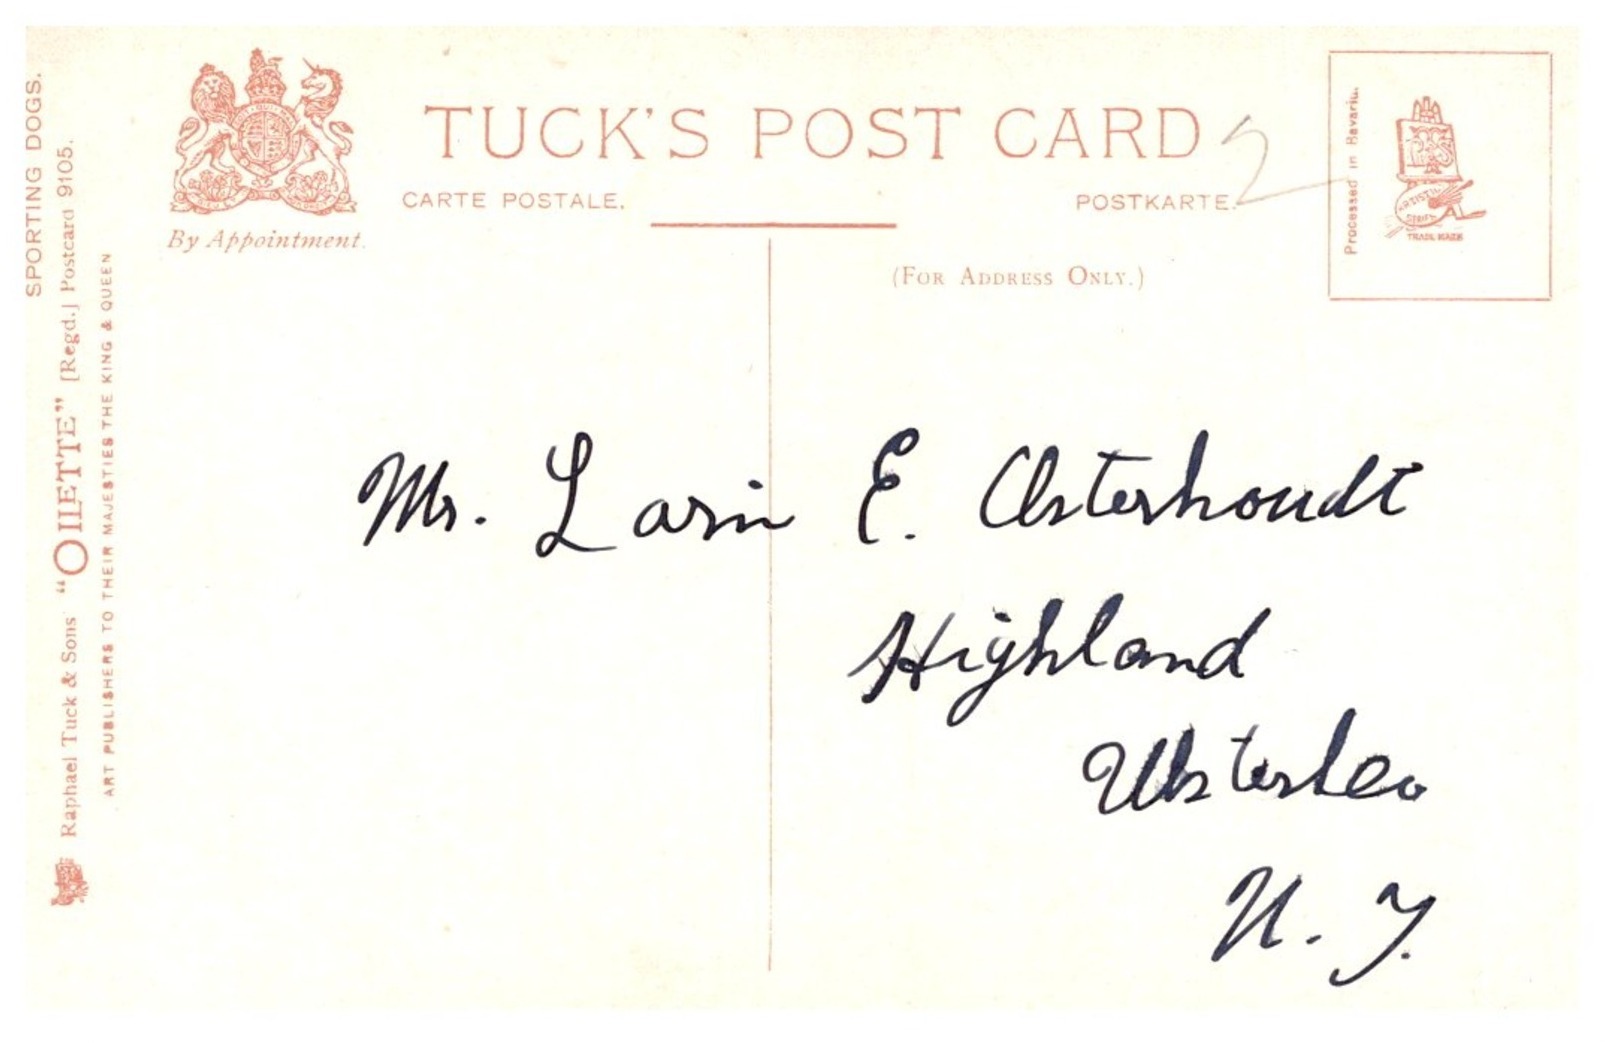 TUCK'S POST CARD
CARTE POSTALE.
POSTKARTE.
By Appointment.
(FOR ADDRESS ONLY.)
Processed in Bavaria.
ARTISTIC SERIES
TRADE MARK
2
SPORTING DOGS.
Raphael Tuck & Sons' "OILETTE" [Regd.] Postcard 9105.
ART PUBLISHERS TO THEIR MAJESTIES THE KING & QUEEN
Mr. Larin E. Osterhoudt
Highland
Ulsterleo
N. Y.